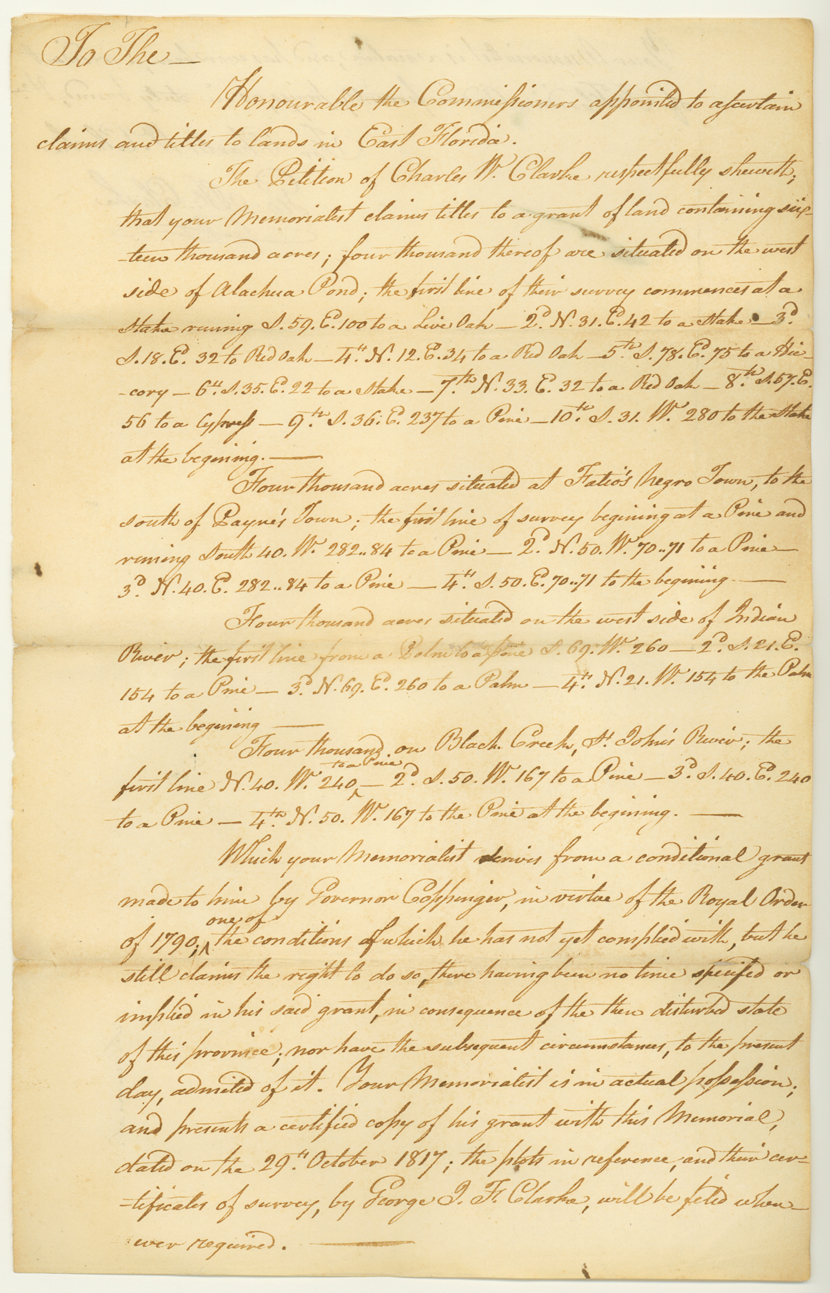 To The —
Honourable the Commissioners appointed to ascertain
claims and titles to lands in East Florida.
The Petition of Charles W. Clarke respectfully sheweth;
that your Memorialist claims titles to a grant of land containing six-
-teen thousand acres; four thousand thereof are situated on the west
side of Alachua Pond; the first line of their survey commences at a
stake runing S. 59. E. 100 to a Live Oak — 2d. N. 31. E. 42 to a stake — 3d
S. 18. E. 32 to Red Oak — 4th. N. 12. E. 34 to a Red Oak — 5th S. 78. E. 75 to a Hic-
-cory — 6th S. 35. E. 22 to a stake — 7th. N. 33. E. 32 to a Red Oak — 8th. S. 57. E.
56 to a Cypress — 9th S. 36. E. 237 to a Pine — 10th. S. 31. W. 280 to the stake
at the begining. —
Four thousand acres situated at Fatio's Negro Town, to the
south of Payne's Town; the first line of survey begining at a Pine and
runing South 40. W. 282..84 to a Pine — 2d. N. 50. W. 70..71 to a Pine —
3d N. 40. E. 282..84 to a Pine — 4th. S. 50. E. 70..71 to the begining —
Four thousand acres situated on the west side of Indian
River; the first line from a Palm to a Pine S. 69. W. 260 — 2d. S. 21. E.
154 to a Pine — 3d. N. 69. E. 260 to a Palm — 4th. N. 21. W. 154 to the Palm
at the begining —
Four thousand on Black Creek, St. John's River; the
first line N. 40. W. 240, to a Pine — 2d S. 50. W. 167 to a Pine — 3d S. 40. E. 240
to a Pine — 4th N. 50. W. 167 to the Pine at the begining. —
Which your Memorialist derives from a conditional grant
made to him by Governor Coppinger, in virtue of the Royal Order
of 1790; one of the conditions of which he has not yet complied with, but he
still claims the right to do so, there having been no time specified or
implied in his said grant, in consequence of the then disturbed state
of this province; nor have the subsequent circumstances, to the present
day, admited of it. Your Memorialist is in actual possession;
and presents a certified copy of his grant with this Memorial,
dated on the 29th. October 1817; the plots in reference, and their cer-
-tificates of survey, by George J. F. Clarke, will be filed when-
-ever required. —